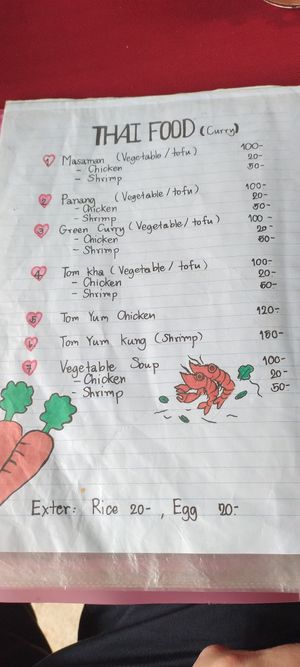 THAI FOOD (Curry)
1 Masaman (Vegetable / tofu) 100-
- Chicken 20-
- Shrimp 50-
2 Panang (Vegetable / tofu) 100-
- Chicken 20-
- Shrimp 50-
3 Green Curry (Vegetable / tofu) 100-
- Chicken 20-
- Shrimp 50-
4 Tom kha (Vegetable / tofu) 100-
- Chicken 20-
- Shrimp 50-
5 Tom Yum Chicken 120-
6 Tom Yum Kung (Shrimp) 150-
7 Vegetable Soup 100-
- Chicken 20-
- Shrimp 50-
Exter: Rice 20-, Egg 20-